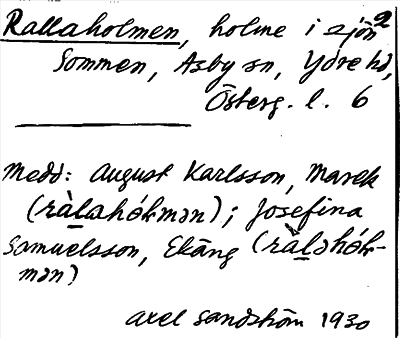 Rallaholmen, holme i sjön 2
Sommen, Asby sn, Ydre hd,
Österg. l. 6
Medd: August Karlsson, Marek
(ràlahól-mən); Josefina
Samuelsson, Ekäng (ràləhól-
mən)
Axel Sandström 1930